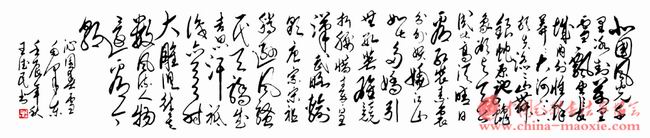 北国风光千
里冰封万里
雪飘望长
城内外惟馀
莽莽大河上
下顿失滔滔山舞
银蛇原驰蜡
象欲与天公
试比高须晴日
看红装素裹
分外妖娆江山
如此多娇引
无数英雄竞
折腰惜秦皇
汉武略输
文采唐宗宋祖
稍逊风骚
一代天骄成
吉思汗只
识弯弓射
大雕俱往矣
数风流人物
还看今
朝
沁园春雪
毛泽东
壬辰年秋